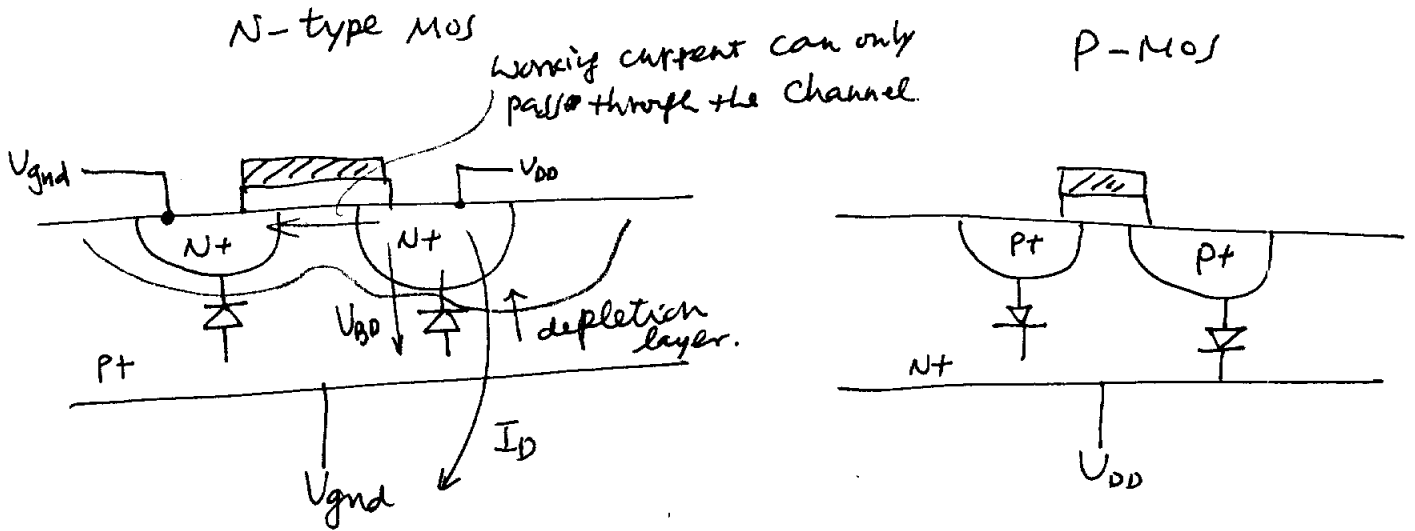 N-type MOS
working current can only
pass through the channel.
P-MOS
Vgnd
VDD
N+
N+
P+
P+
VBD
depletion
layer.
P+
N+
ID
Vgnd
VDD